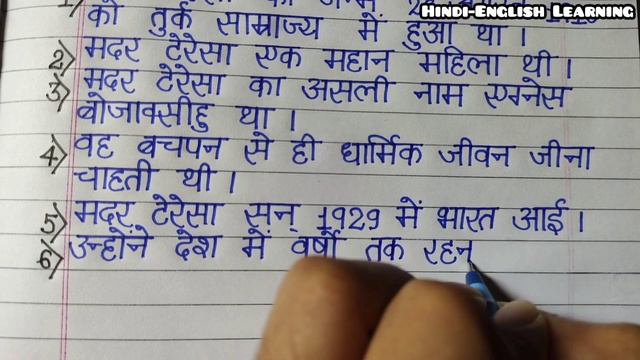 Hindi-English Learning
को तुर्क साम्राज्य में हुआ था।
2) मदर टेरेसा एक महान महिला थी।
3) मदर टेरेसा का असली नाम एग्नेस
बोजाक्सीहु था।
4) वह बचपन से ही धार्मिक जीवन जीना
चाहती थी।
5) मदर टेरेसा सन् 1929 में भारत आई।
6) उन्होंने देश में वर्षो तक रहन